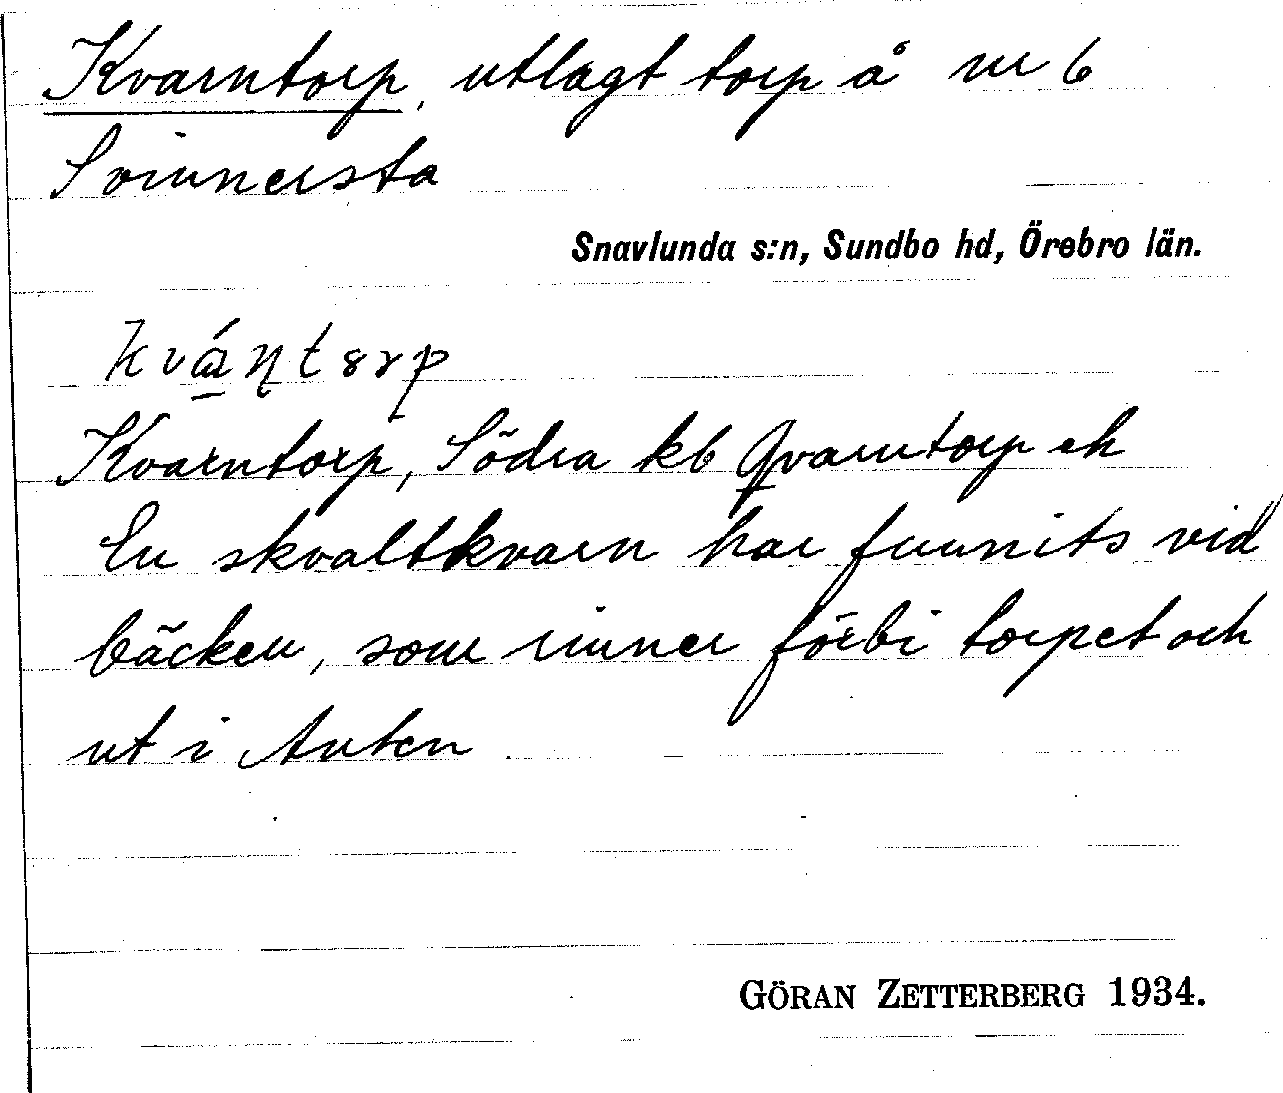 Kvarntorp, utlagt torp å nr 6
Svinnersta
Snavlunda s:n, Sundbo hd, Örebro län.
kvá̱ɳtɘrp
Kvarntorp, Södra kb Qvarntorp ek
En skvaltkvarn har funnits vid
bäcken, som rinner förbi torpet och
ut i Anten
GÖRAN ZETTERBERG 1934.